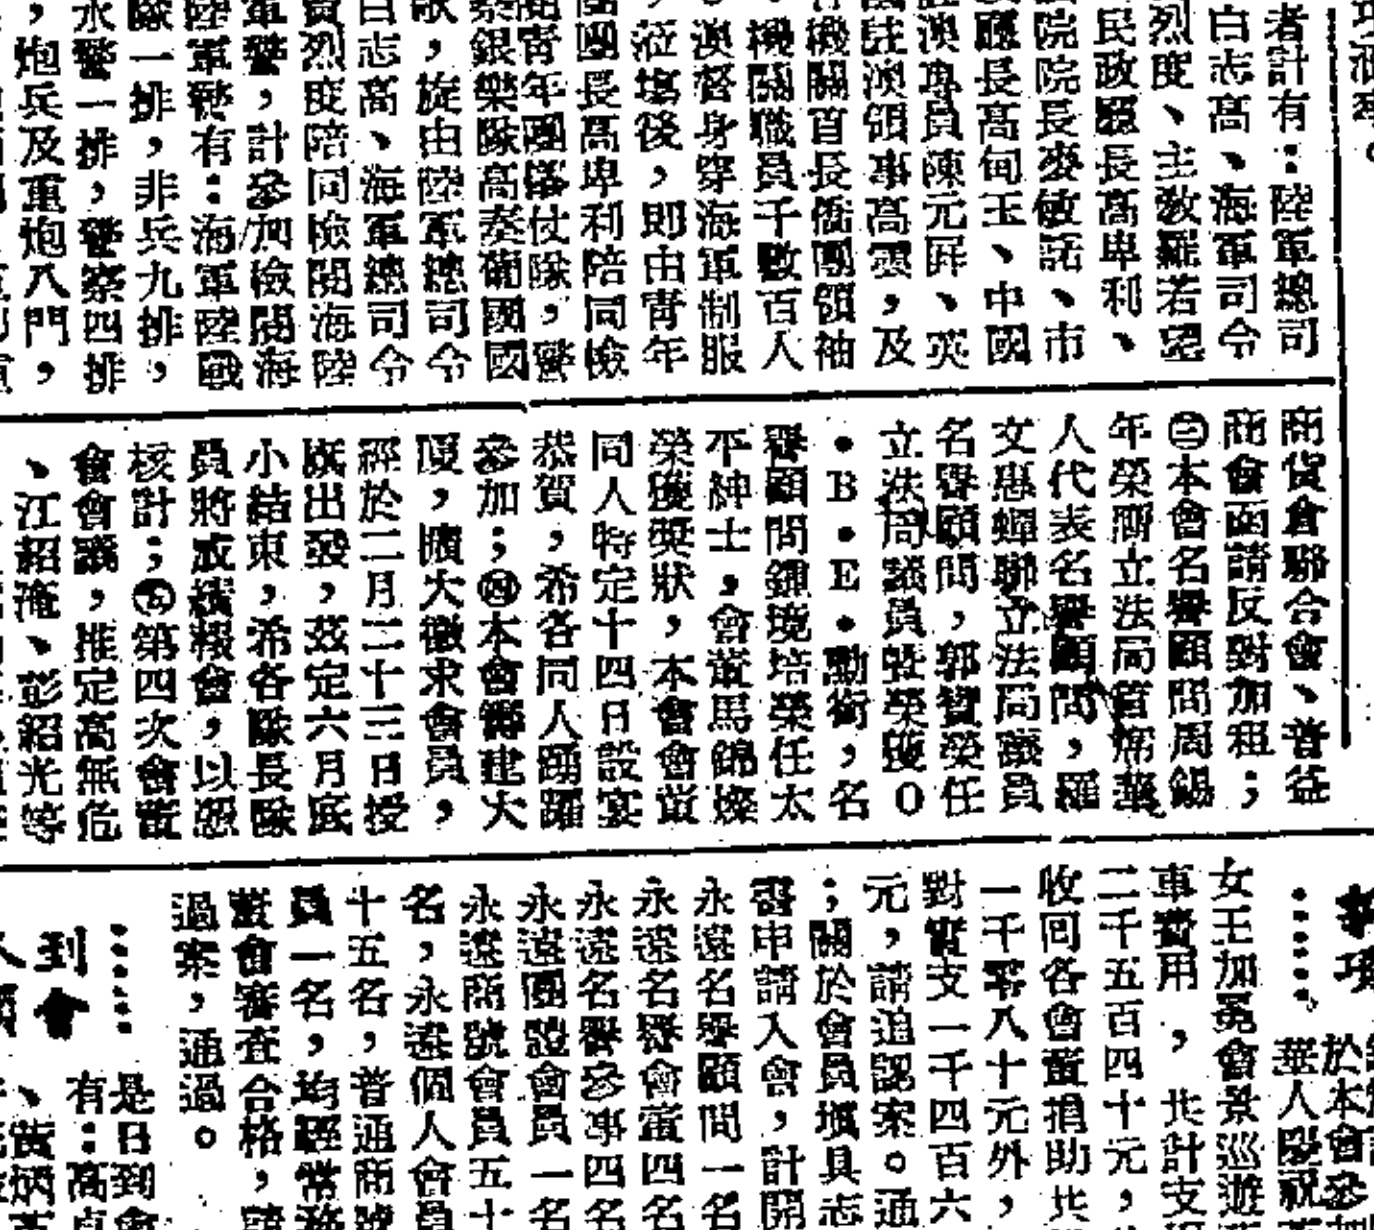 者計有：陸軍總司
白志高、海軍司令
烈度、主敎羅若望
民政廳長高卑利、
院院長麥敏諾、市
廳長高甸玉、中國
澳專員陳元屏、英
國駐澳領事高雲，及
機關首長僑團領袖
機關職員千數百人
澳督身穿海軍制服
蒞塲後，則由靑年
團團長高卑利陪同檢
靑年團儀仗隊，警
察銀樂隊高奏葡國國
歌，旋由陸軍總司令
白志高、海軍總司令
賈烈度陪同檢閱海陸
軍警，計參加檢閱海
陸軍警有：海軍陸戰
隊一排，非兵九排，
水警一排，警察四排
，炮兵及重炮八門，
商貨倉聯合會、普益
商會函請反對加租；
㊂本會名譽顧問周錫
年榮膺立法局首席華
人代表名譽顧問，羅
文惠蟬聯立法局議員
名譽顧問，郭贊榮任
立法局議員暨榮獲O
•B•E•勳銜，名
譽顧問鍾境培榮任太
平紳士，會董馬錦燦
榮獲獎狀，本會會董
同人特定十四日設宴
恭賀，希各同人踴躍
參加；㊃本會籌建大
厦，擴大徵求會員，
經於二月二十三日授
旗出發，茲定六月底
小結束，希各隊長隊
員將成績報會，以憑
核計；㊄第四次會董
會會議，推定高無危
、江紹淹、彭紹光等
女王加冕會景巡遊
車費用，共計支
二千五百四十元，
收回各會董捐助共
一千零八十元外，
對實支一千四百六
元，請追認案。通
；關於會員塡具志
書申請入會，計開
永遠名譽顧問一名
永遠名譽會董四名
永遠名譽參事四名
永遠團體會員一名
永遠商號會員五十
名，永遠個人會員
十五名，普通商號
員一名，均經常務
董會審查合格，請
過案，通過。
到會
是日到會
有：高卓